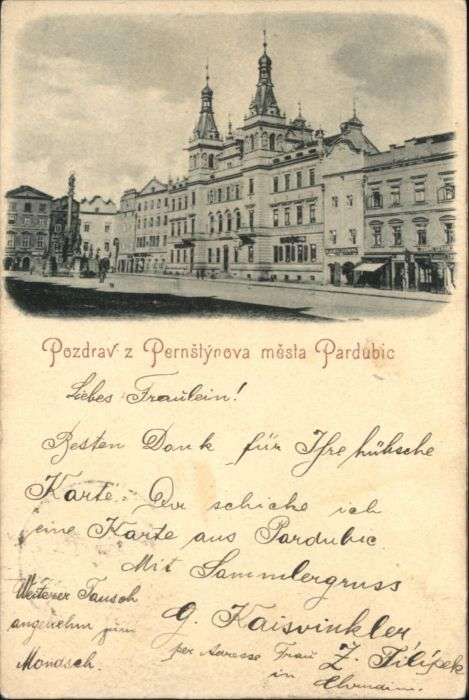 Pozdrav z Pernštýnova města Pardubic
Liebes Fraulein!
Besten Dank für Ihre hübsche
Karte. Dir schicke ich
eine Karte aus Pardubic
Mit Sammlergruss
Weiterer Tausch
angenehm zum
Mondsch.
G. Kaisvinkler,
per Adresse Frau Z. Filípek
in
Chrudim.